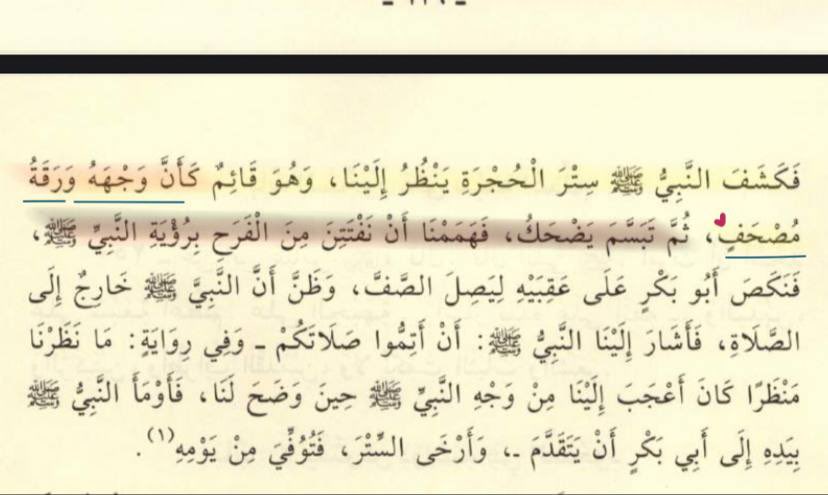 فَكَشَفَ النَّبِيُّ ﷺ سِتْرَ الْحُجْرَةِ يَنْظُرُ إِلَيْنَا، وَهُوَ قَائِمٌ كَأَنَّ وَجْهَهُ وَرَقَةُ
مُصْحَفٍ، ثُمَّ تَبَسَّمَ يَضْحَكُ، فَهَمَمْنَا أَنْ نَفْتَتِنَ مِنَ الْفَرَحِ بِرُؤْيَةِ النَّبِيِّ ﷺ،
فَنَكَصَ أَبُو بَكْرٍ عَلَى عَقِبَيْهِ لِيَصِلَ الصَّفَّ، وَظَنَّ أَنَّ النَّبِيَّ ﷺ خَارِجٌ إِلَى
الصَّلَاةِ، فَأَشَارَ إِلَيْنَا النَّبِيُّ ﷺ: أَنْ أَتِمُّوا صَلَاتَكُمْ ـ وَفِي رِوَايَةٍ: مَا نَظَرْنَا
مَنْظَرًا كَانَ أَعْجَبَ إِلَيْنَا مِنْ وَجْهِ النَّبِيِّ ﷺ حِينَ وَضَحَ لَنَا، فَأَوْمَأَ النَّبِيُّ ﷺ
بِيَدِهِ إِلَى أَبِي بَكْرٍ أَنْ يَتَقَدَّمَ ـ، وَأَرْخَى السِّتْرَ، فَتُوُفِّيَ مِنْ يَوْمِهِ(١).